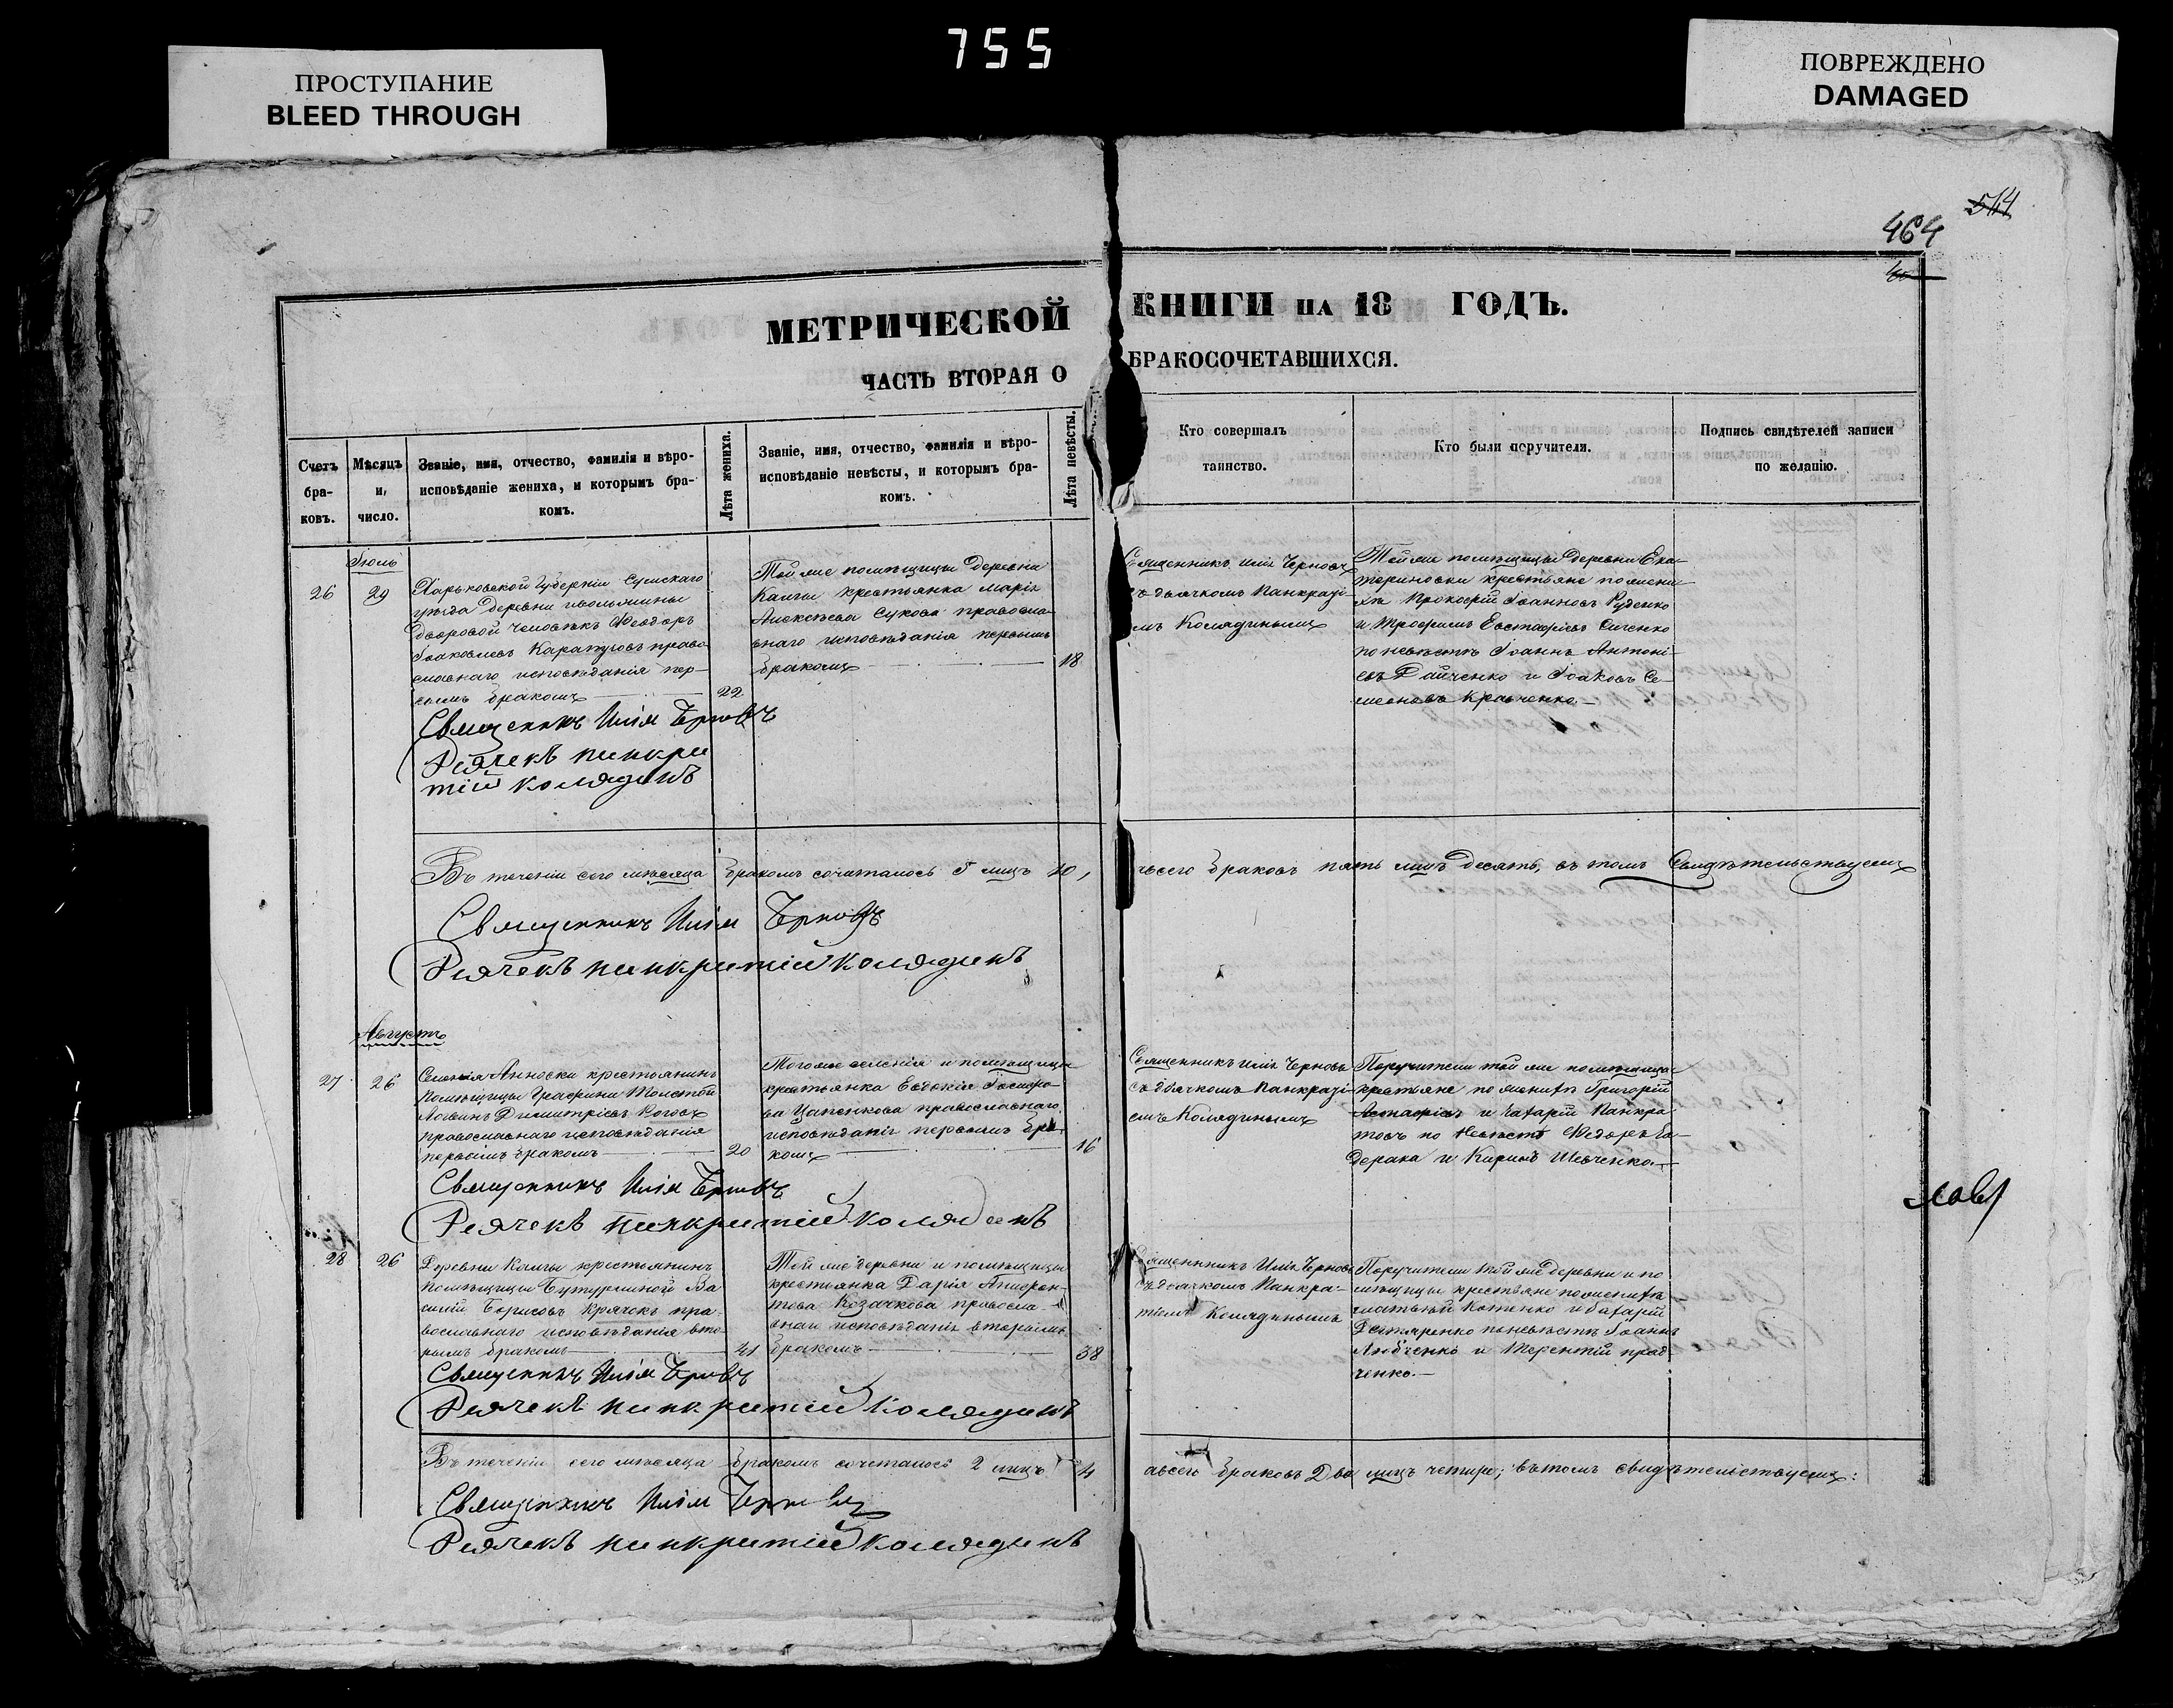 755
ПРОСТУПАНИЕ
BLEED THROUGH
ПОВРЕЖДЕНО
DAMAGED
514
464
МЕТРИЧЕСКОЙ КНИГИ НА 18 ГОДЪ.
ЧАСТЬ ВТОРАЯ О БРАКОСОЧЕТАВШИХСЯ.
Счетъ
бра-
ковъ.
Мѣсяцъ
и
число.
Званіе, имя, отчество, фамилія и вѣро-
исповѣданіе жениха, и которымъ бра-
комъ.
Лѣта жениха.
Званіе, имя, отчество, фамилія и вѣро-
исповѣданіе невѣсты, и которымъ бра-
комъ.
Лѣта невѣсты.
Кто совершалъ
таинство.
Кто были поручители.
Подпись свидѣтелей записи
по желанію.
Іюль
26
29
Харьковской Губерніи Сумскаго
уѣзда деревни
дворовой человѣкъ Ѳеодоръ
Іаковлевъ Карапузовъ право
славнаго исповѣданія пер-
вымъ бракомъ
22
Священникъ Илія Черновъ
Дьячекъ Панкра
тій Колядинъ
Той же помѣщицы деревни
крестьянка Марія
Алексѣева Сукова правосла-
внаго исповѣданія первымъ
бракомъ
18
Священникъ Илія Черновъ
съ дьячкомъ Панкраті-
емъ Колядинымъ
Той же помѣщицы деревни Ека-
териновки крестьяне по жени-
хѣ Прокофій Іоанновъ Руденко
и Трофимъ Евстафіевъ Сиченко
по невѣстѣ Іоаннъ Антоні-
евъ Дайченко и Іаковъ Се-
меновъ Кравченко
Въ теченіи сего мѣсяца бракомъ сочиталось 5 лицъ 10, всего браковъ пять лицъ десять, въ томъ Свидѣтельствуемъ
Священникъ Илія Черновъ
Дьячекъ Панкратій Колядинъ
Августъ
27
26
Селенія Анновки крестьянинъ
помѣщицы Графини Толстой
Логвинъ Димитріевъ Коговъ
православнаго исповѣданія
первымъ бракомъ
20
Священникъ Илія Черновъ
Дьячекъ Панкратій Колядинъ
Того же селенія и помѣщицы
крестьянка Евдокія
Цапенкова православнаго
исповѣданія первымъ бра-
комъ
16
Священникъ Илія Черновъ
съ дьячкомъ Панкраті-
емъ Колядинымъ
Поручители той же помѣщицы
крестьяне по женихѣ Григорій
Астафіевъ и Захарій Панкра
товъ по невѣстѣ Ѳедоръ Ча-
дерака и Кирилъ Шевченко
28
26
Деревни крестьянинъ
помѣщицы Бутурлиной Ва
силій Борисовъ Крячокъ пра
вославнаго исповѣданія вто-
рымъ бракомъ
41
Священникъ Илія Черновъ
Дьячекъ Панкратій Колядинъ
Той же деревни и помѣщицы
крестьянка Дарія
Козачкова правосла-
внаго исповѣданія вторымъ
бракомъ
38
Священникъ Илія Черновъ
съ дьячкомъ Панкра-
тіемъ Колядинымъ
Поручители той же деревни и по
мѣщицы крестьяне по женихѣ
Матвѣй Котенко и Захарій
Дегтяренко по невѣстѣ Іоаннъ
Любченко и Терентій Прад-
ченко
Въ теченіи сего мѣсяца бракомъ сочеталось 2 лицъ 4 а всего браковъ два лицъ четыре; въ томъ свидѣтельствуемъ:
Священникъ Илія Черновъ
Дьячекъ Панкратій Колядинъ